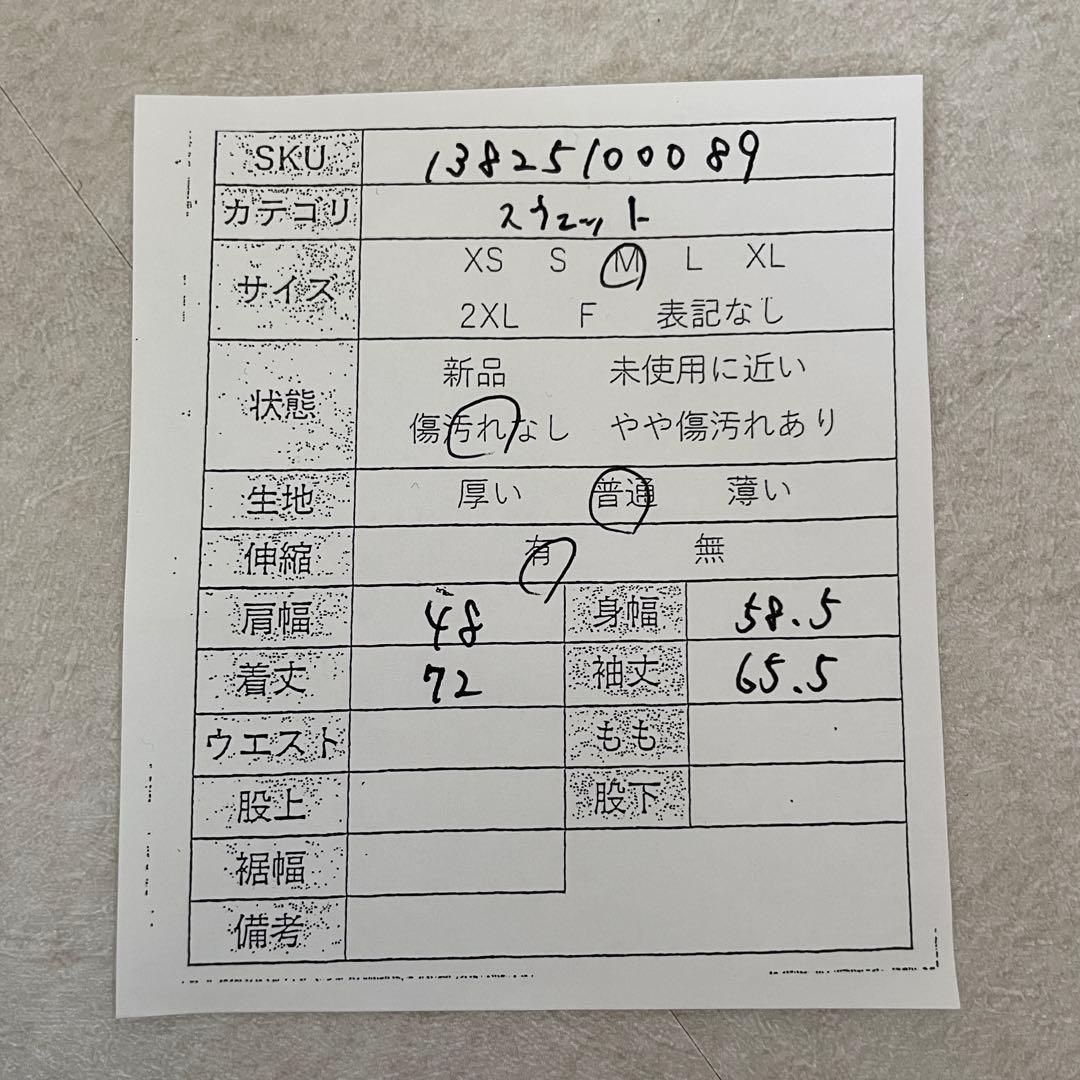 SKU 13825100089
カテゴリ スウェット
サイズ XS S M L XL
2XL F 表記なし
状態 新品 未使用に近い
傷汚れなし やや傷汚れあり
生地 厚い 普通 薄い
伸縮 有 無
肩幅 48 身幅 58.5
着丈 72 袖丈 65.5
ウエスト もも
股上 股下
裾幅
備考